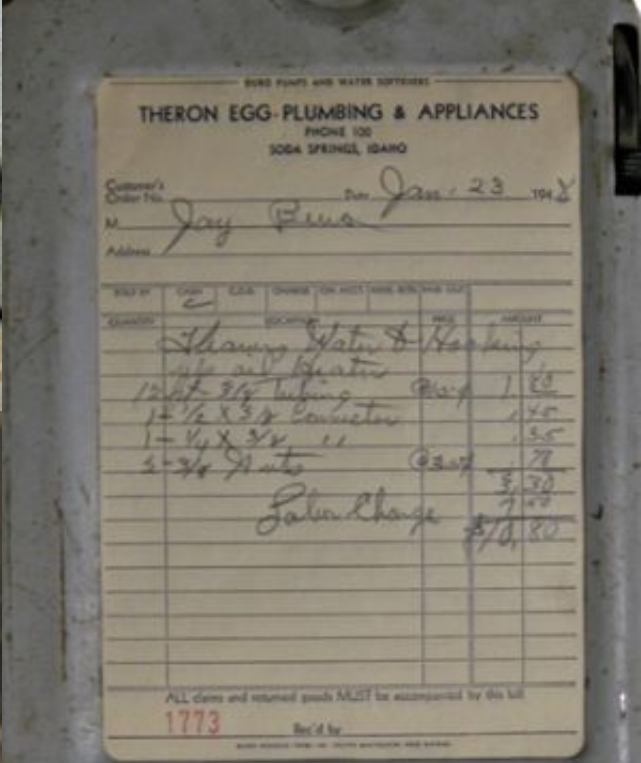 DURO PUMPS AND WATER SOFTENERS
THERON EGG-PLUMBING & APPLIANCES
PHONE 100
SODA SPRINGS, IDAHO
Customer's
Order No. Date Jan. 23 1948
M Jay
Address
SOLD BY CASH C.O.D. CHARGE ON ACCT. MDSE. RETD. PAID OUT
QUANTITY DESCRIPTION PRICE AMOUNT
Thawing Water & Hooking
up oil Heater
12 ft 3/8 Tubing @15¢ 1.80
1-1/2 X 3/8 Connector .45
1-1/4 X 3/8 " .35
3/8 Nuts
3.30
Labor Charge 7.50
$10.80
ALL claims and returned goods MUST be accompanied by this bill
1773 Rec'd by